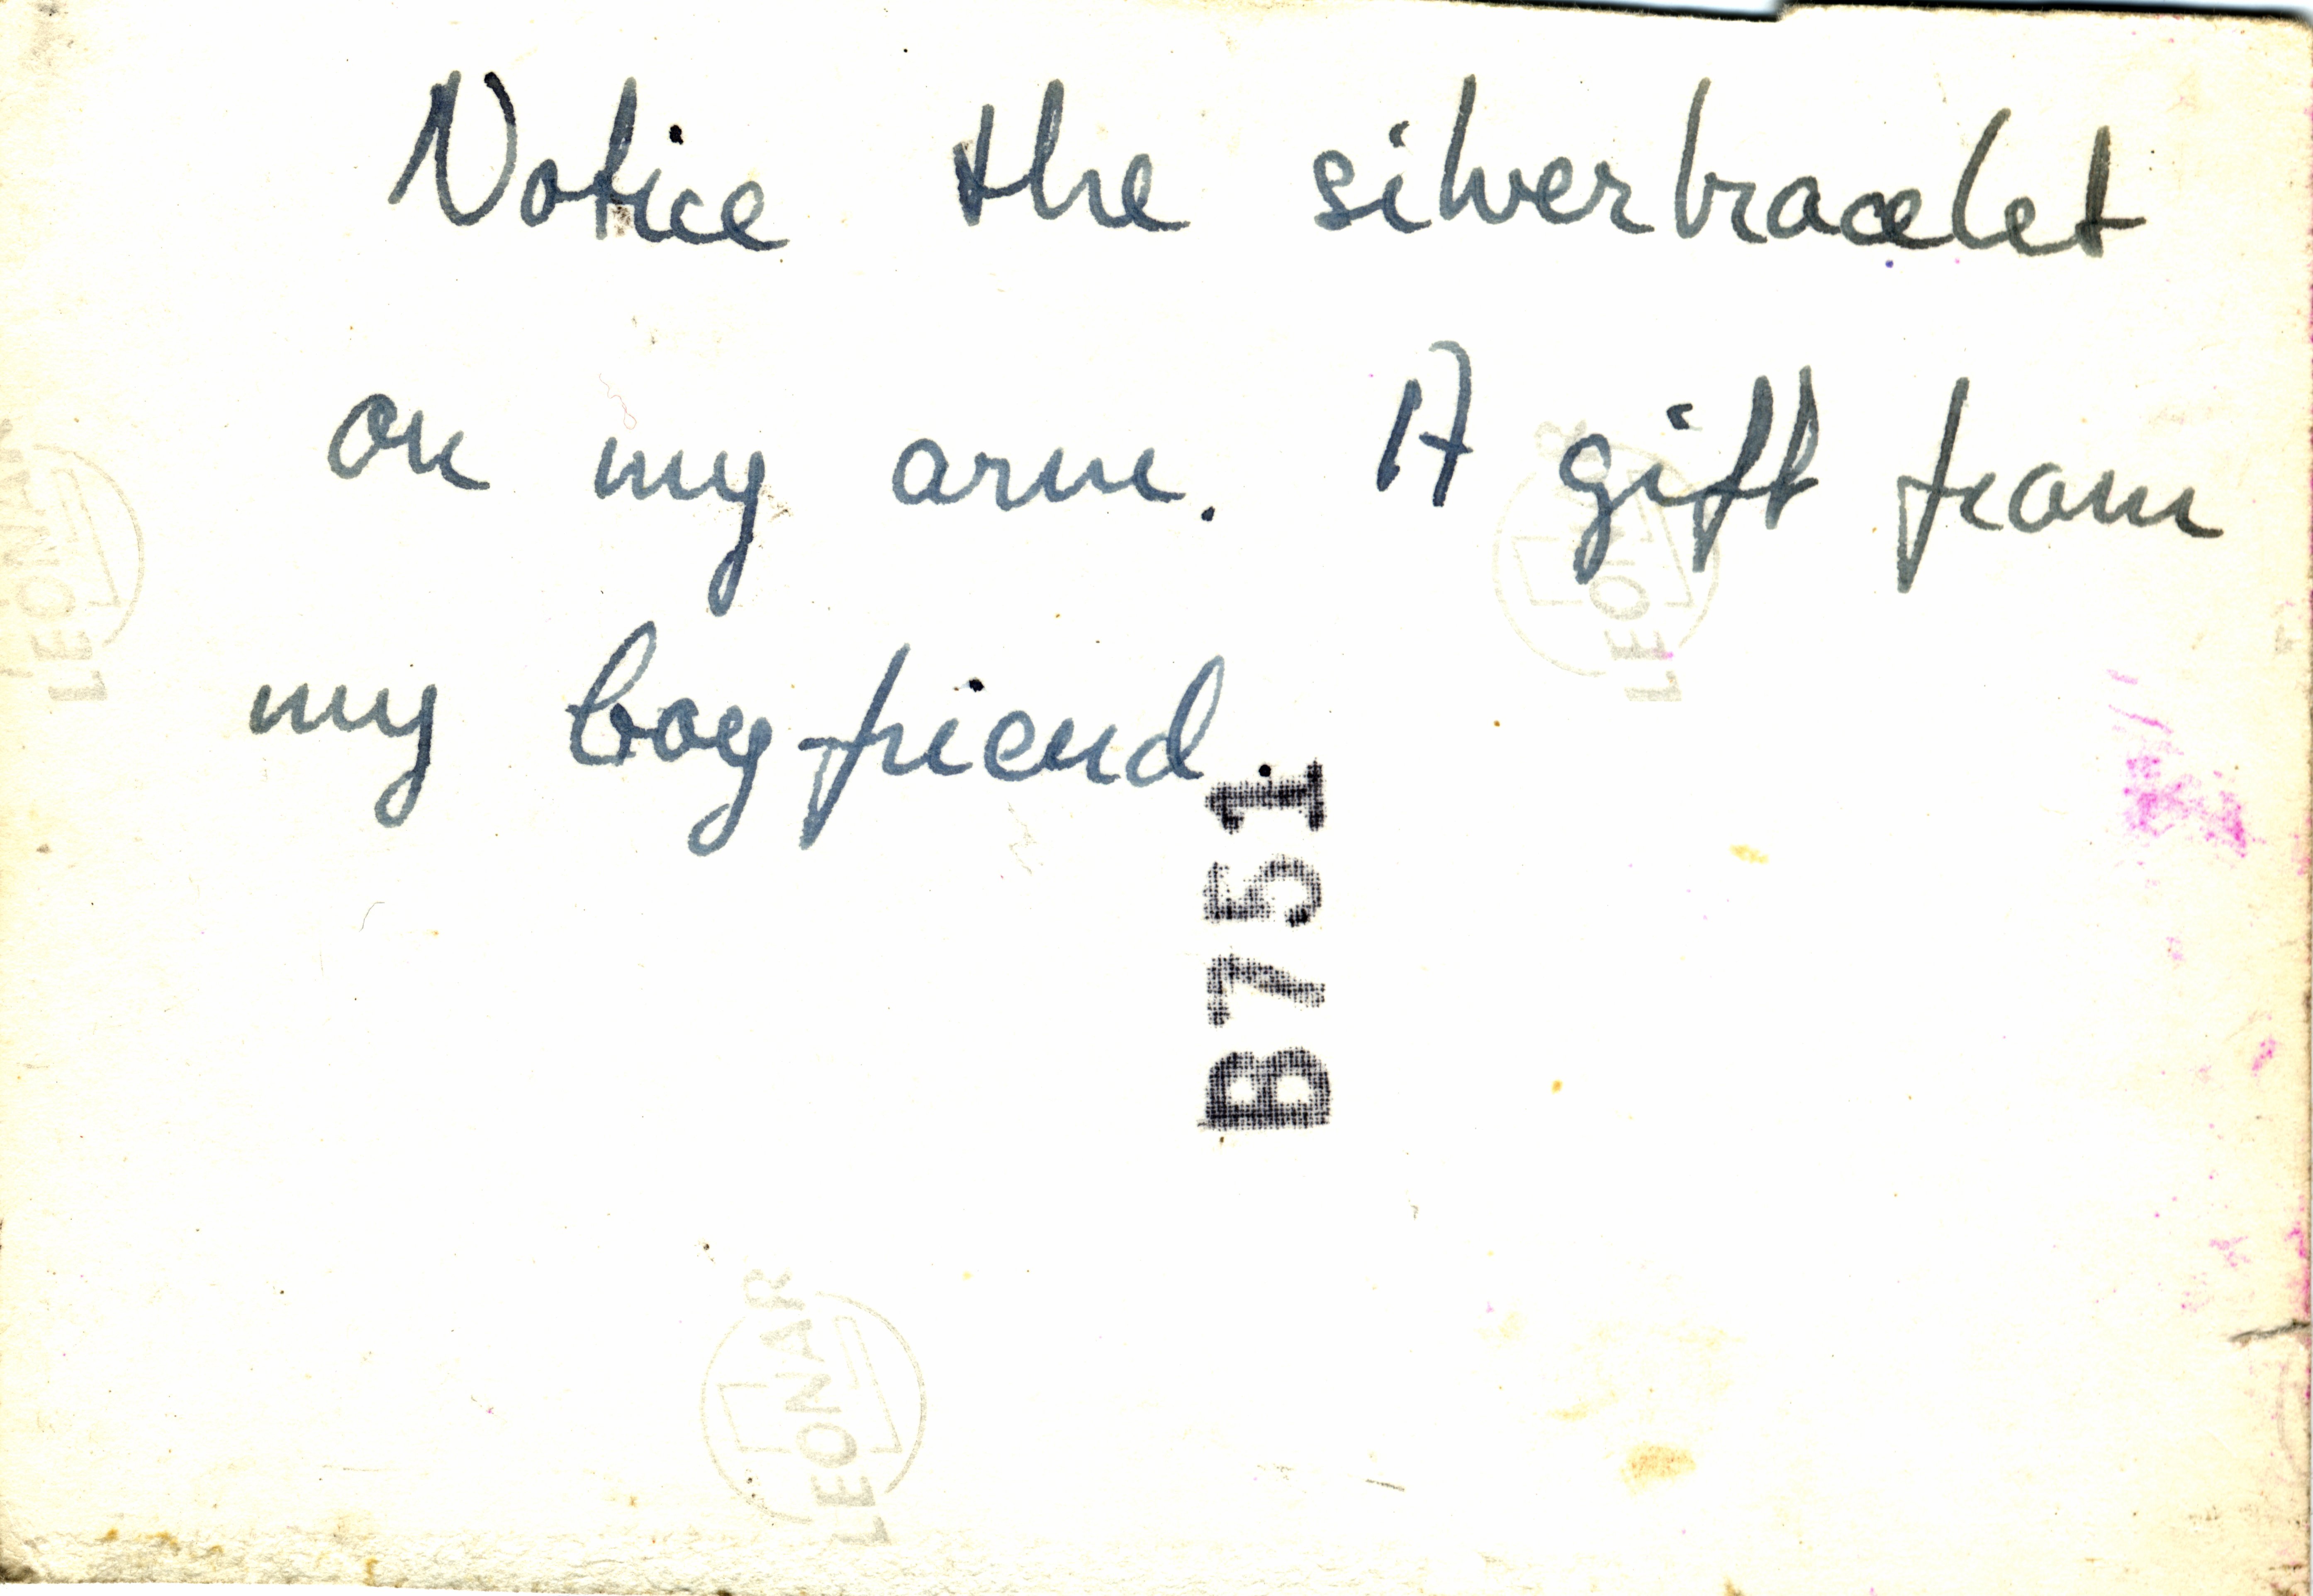 Notice the silverbracelet
on my arm. A gift from
my boy-friend.
B751
LEONAR
LEONAR
LEONAR